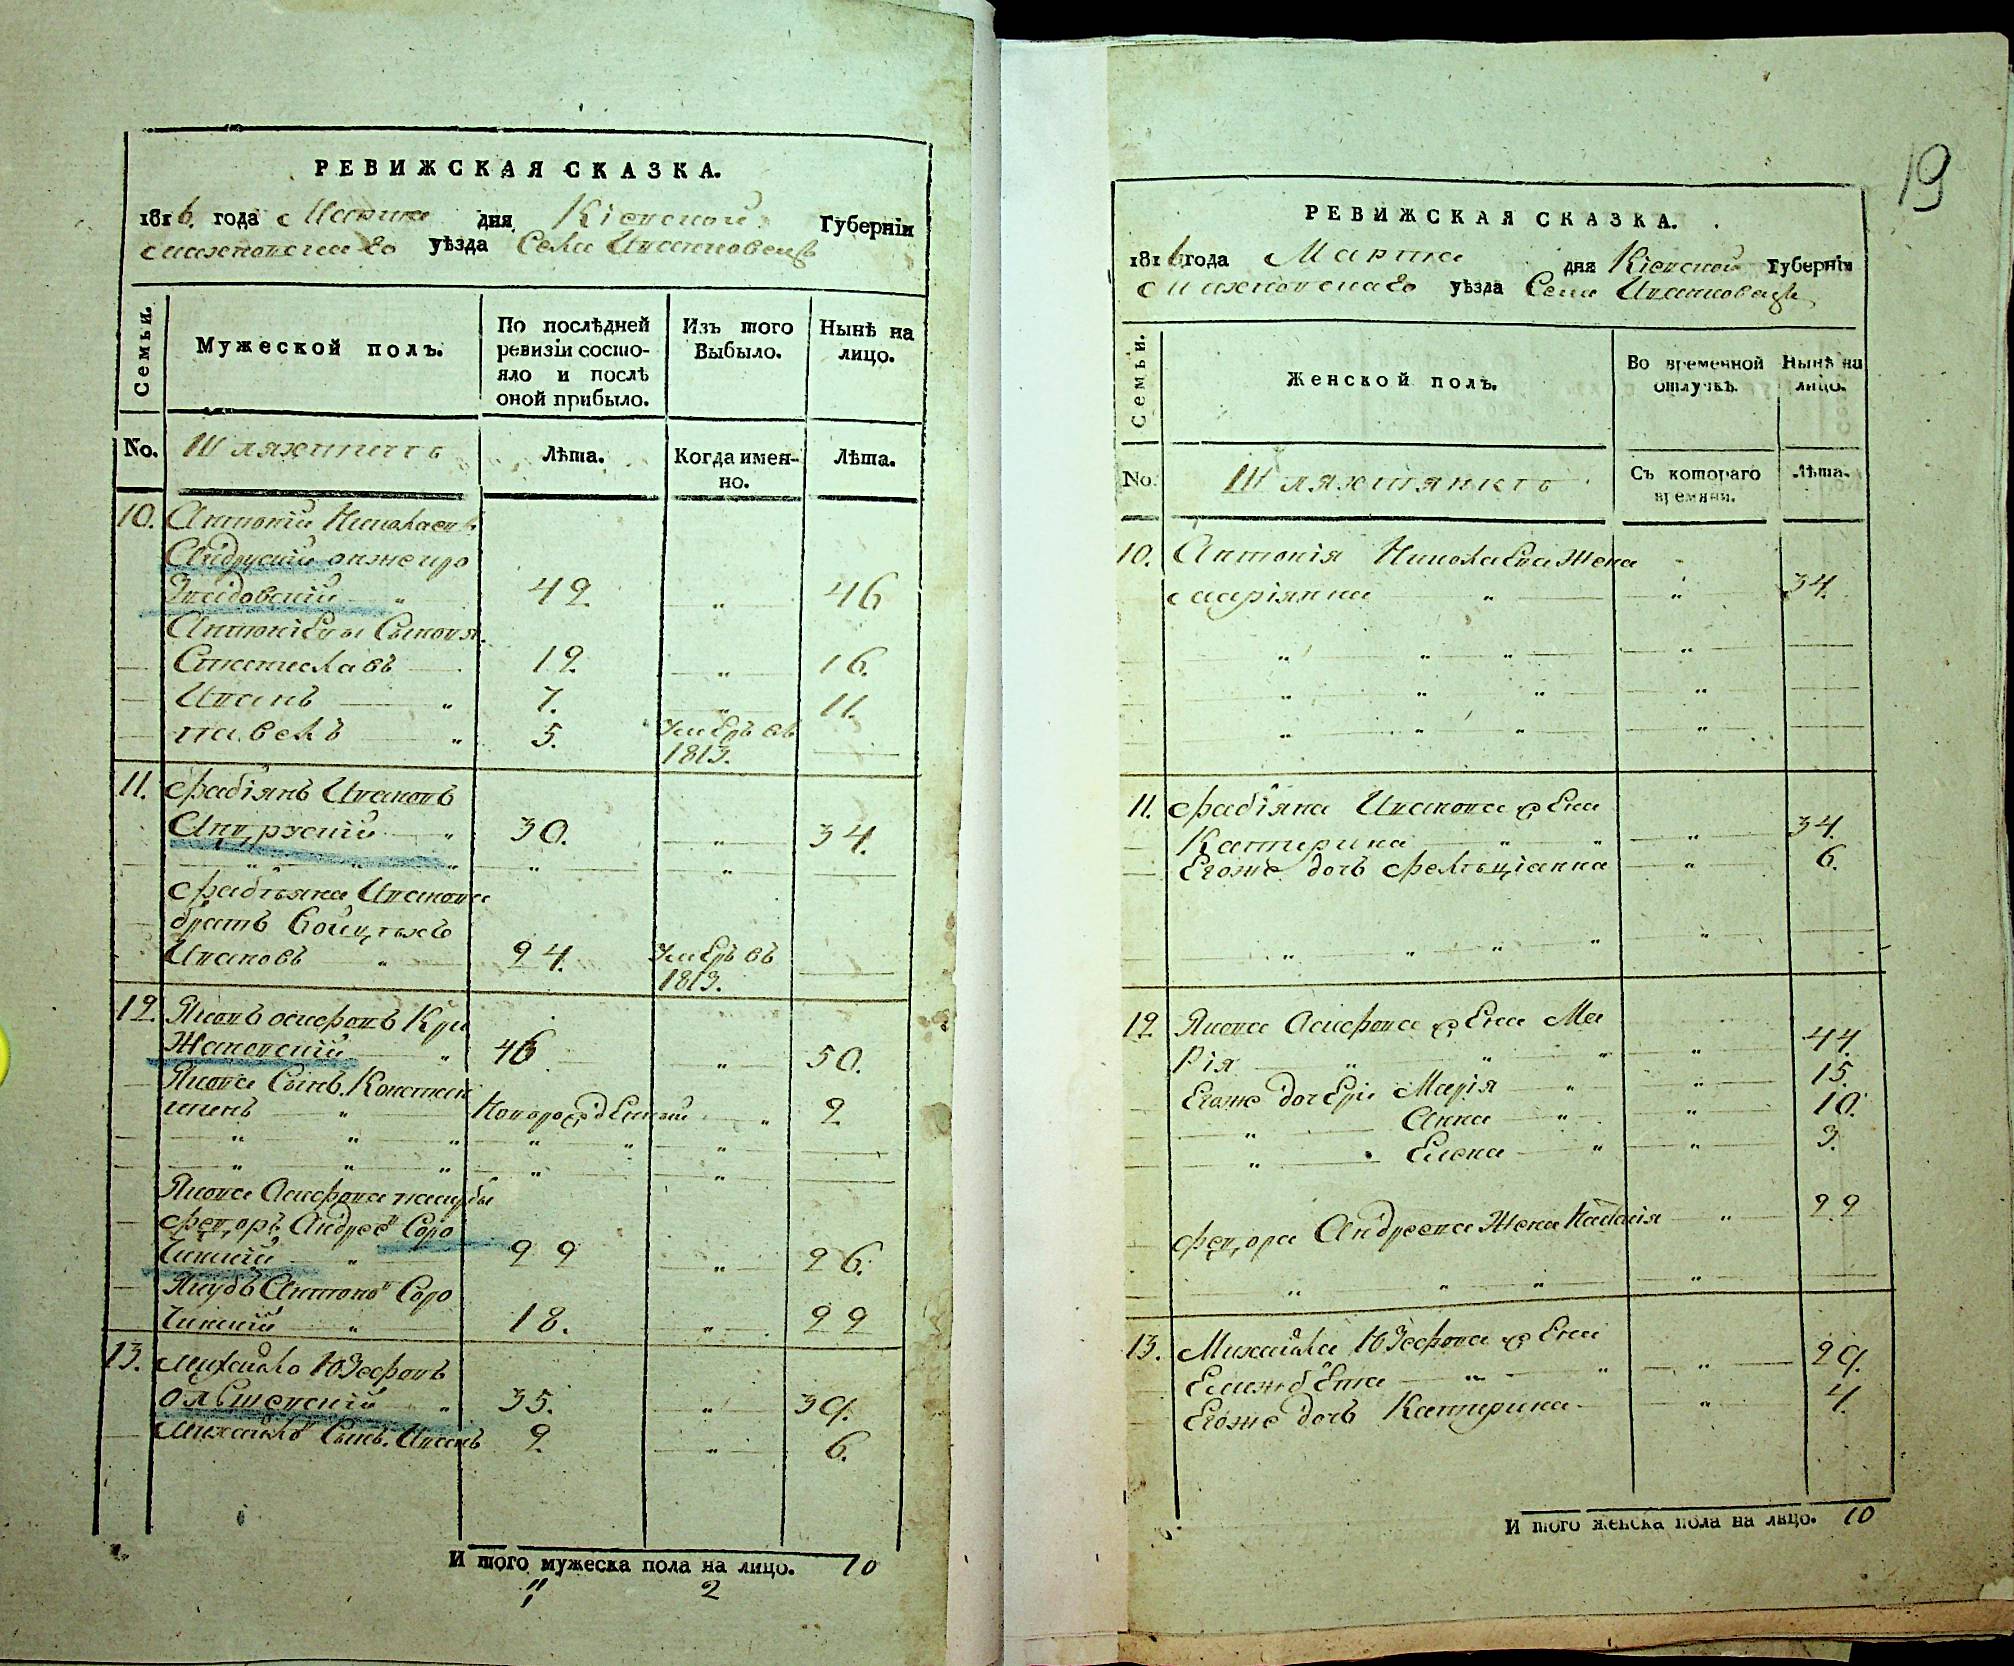 РЕВИЖСКАЯ СКАЗКА.
1816 года Марта дня Кіевской Губерніи
уѣзда Села Иванковецъ
Семьи.
Мужеской полъ.
По послѣдней ревизіи состояло и послѣ оной прибыло.
Изъ того Выбыло.
Нынѣ на лицо.
No. Шляхтичъ Лѣта. Когда именно. Лѣта.
10. Антоній Николаевъ
онже и про
42. „ 46
Антоніевы Сыновя
Станиславъ 12 „ 16.
Иванъ „ 7. „ 11.
Павелъ „ 5. Умеръ въ 1813.
11. Фабіянъ Ивановъ
„ 30. „ 34.
„ „ „ „ „
Фабіяна Иванова
братъ Войцѣхъ
Ивановъ „ 24. Умеръ въ 1813.
12. Яковъ Осифовъ Кри
жановскій „ 46 „ 50.
Якова Сынъ Констан
тинъ „ Новорожденный „ 2
„ „ „ „ „ „
„ „ „ „ „
Якова Осифова
Федоръ Андреев Соро
чинскій „ 22 „ 26.
Якубъ Антонов Соро
чинскій „ 18. „ 22
13. Михайло Юзефовъ
Ольшевскій „ 35. „ 39.
Михайлов Сынъ Иванъ 2 „ 6.
И того мужеска пола на лицо. 10
„ 2
19
РЕВИЖСКАЯ СКАЗКА.
1816 года Марта дня Кіевской Губерніи
уѣзда Села Иванковецъ
Семьи.
Женской полъ.
Во временной отлучкѣ.
Нынѣ на лицо.
No. Шляхтянкѣ Съ котораго времяни. Лѣта.
10. Антонія Николаева Жена
Маріянна „ „ 34.
„ „ „ „
„ „ „ „
„ „ „ „
11. Фабіяна Иванова жена
Катерина „ „ „ 34.
Егоже дочь Фелиціанна „ 6.
„ „ „ „ „
12 Якова Осифова жена Ма
рія „ „ „ „ 44.
Егоже дочери Марія „ „ 15.
„ Анна „ „ 10.
„ Елена „ „ 3.
Федора Андреева Жена Наталія „ 22
„ „ „ „
13. Михайла Юзефова жена
Елизбѣта „ „ „ 29.
Егоже дочь Катерина „ 4.
И того женска пола на лицо. 10